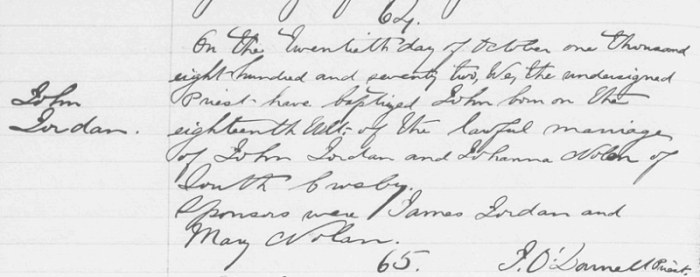 64.
On the Twentieth day of October one thousand
eight hundred and seventy two, We, the undersigned
John
Priest have baptized John born on the
Jordan.
eighteenth Ult. of the lawful marriage
of John Jordan and Johanna Nolan of
South Crosby.
Sponsors were James Jordan and
Mary Nolan.
65.
J. O'Donnell Priest.